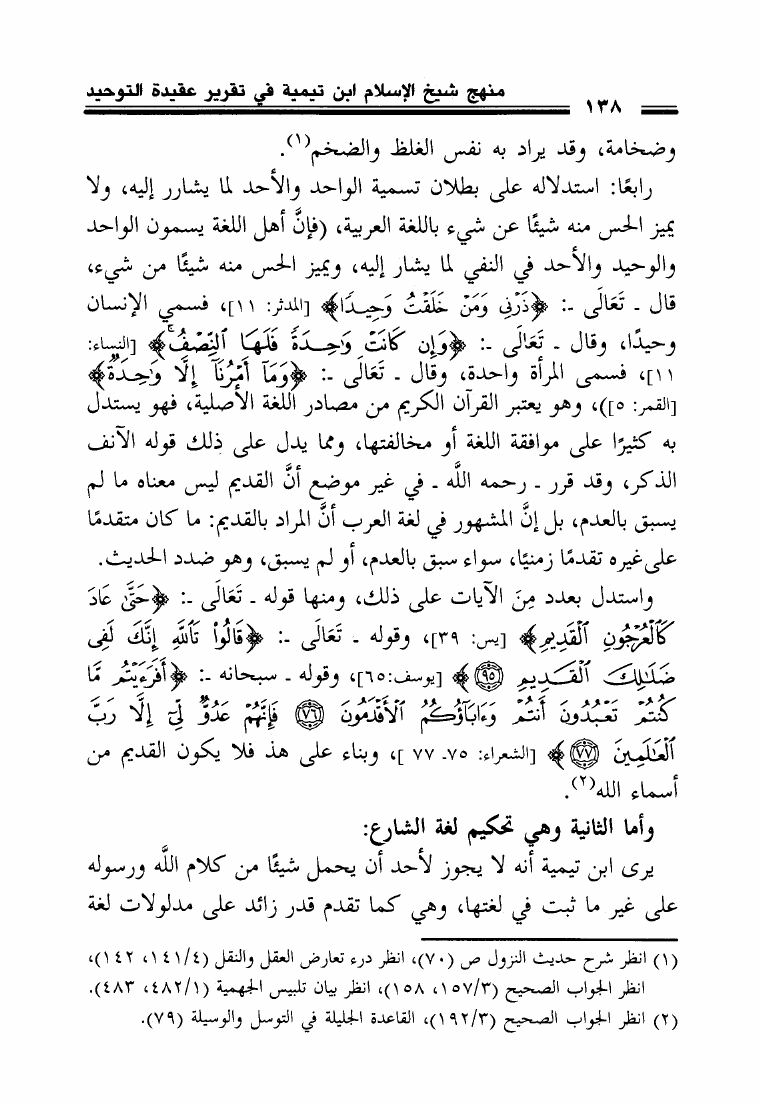 منهج شيخ الإسلام ابن تيمية في تقرير عقيدة التوحيد
١٣٨
وضخامة، وقد يراد به نفس الغلظ والضخم(١).
رابعًا: استدلاله على بطلان تسمية الواحد والأحد لما يشارر إليه، ولا
يميز الحس منه شيئًا عن شيء باللغة العربية، (فإنَّ أهل اللغة يسمون الواحد
والوحيد والأحد في النفي لما يشار إليه، ويميز الحس منه شيئًا من شيء،
قال ـ تَعَالَى ـ: ﴿ذَرْنِى وَمَنْ خَلَقْتُ وَحِيدًا﴾ [المدثر: ١١]، فسمي الإنسان
وحيدًا، وقال ـ تَعَالَى ـ: ﴿وَإِن كَانَتْ وَٰحِدَةً فَلَهَا ٱلنِّصْفُ ۚ﴾ [النساء:
١١]، فسمى المرأة واحدة، وقال ـ تَعَالَى ـ: ﴿وَمَآ أَمْرُنَآ إِلَّا وَٰحِدَةٌ﴾
[القمر: ٥])، وهو يعتبر القرآن الكريم من مصادر اللغة الأصلية، فهو يستدل
به كثيرًا على موافقة اللغة أو مخالفتها، ومما يدل على ذلك قوله الآنف
الذكر، وقد قرر ـ رحمه اللَّه ـ في غير موضع أنَّ القديم ليس معناه ما لم
يسبق بالعدم، بل إنَّ المشهور في لغة العرب أنَّ المراد بالقديم: ما كان متقدمًا
على غيره تقدمًا زمنيًا، سواء سبق بالعدم، أو لم يسبق، وهو ضدد الحديث.
واستدل بعدد مِنَ الآيات على ذلك، ومنها قوله ـ تَعَالَى ـ: ﴿حَتَّىٰ عَادَ
كَٱلْعُرْجُونِ ٱلْقَدِيمِ﴾ [يس: ٣٩]، وقوله ـ تَعَالَى ـ: ﴿قَالُوا۟ تَٱللَّهِ إِنَّكَ لَفِى
ضَلَٰلِكَ ٱلْقَدِيمِ ٩٥﴾ [يوسف:٦٥]، وقوله ـ سبحانه ـ: ﴿أَفَرَءَيْتُم مَّا
كُنتُمْ تَعْبُدُونَ أَنتُمْ وَءَابَآؤُكُمُ ٱلْأَقْدَمُونَ ٧٦ فَإِنَّهُمْ عَدُوٌّ لِّىٓ إِلَّا رَبَّ
ٱلْعَٰلَمِينَ ٧٧﴾ [الشعراء: ٧٥ـ ٧٧ ]، وبناء على هذ فلا يكون القديم من
أسماء الله(٢).
وأما الثانية وهي تحكيم لغة الشارع:
يرى ابن تيمية أنه لا يجوز لأحد أن يحمل شيئًا من كلام اللَّه ورسوله
على غير ما ثبت في لغتها، وهي كما تقدم قدر زائد على مدلولات لغة
(١) انظر شرح حديث النزول ص (٧٠)، انظر درء تعارض العقل والنقل (١٤١/٤، ١٤٢)،
انظر الجواب الصحيح (١٥٧/٣، ١٥٨)، انظر بيان تلبيس الجهمية (٤٨٢/١، ٤٨٣).
(٢) انظر الجواب الصحيح (١٩٢/٣)، القاعدة الجليلة في التوسل والوسيلة (٧٩).